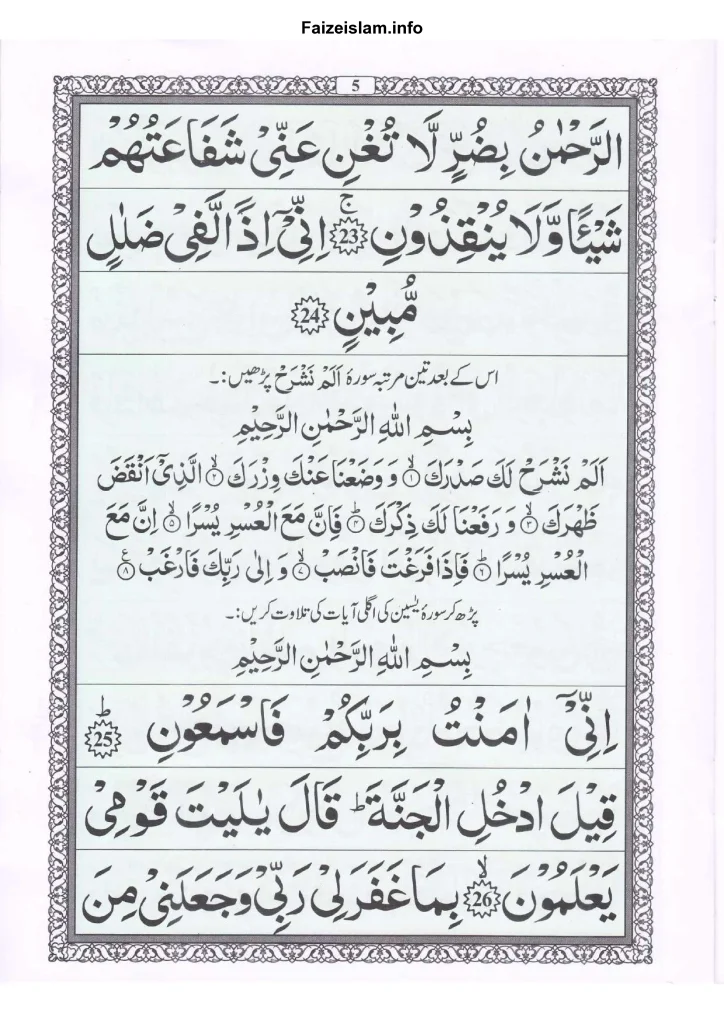 Faizeislam.info
5
الرَّحْمٰنُ بِضُرٍّ لَّا تُغْنِ عَنِّیْ شَفَاعَتُهُمْ
شَیْـًٔا وَّلَا یُنْقِذُوْنِ ۚ 23 اِنِّیْۤ اِذًا لَّفِیْ ضَلٰلٍ
مُّبِیْنٍ 24
اس کے بعد تین مرتبہ سورۂ اَلَمْ نَشْرَحْ پڑھیں:۔
بِسْمِ اللّٰهِ الرَّحْمٰنِ الرَّحِیْمِ
اَلَمْ نَشْرَحْ لَكَ صَدْرَكَ ۙ۱ وَ وَضَعْنَا عَنْكَ وِزْرَكَ ۙ۲ الَّذِیْۤ اَنْقَضَ
ظَهْرَكَ ۙ۳ وَ رَفَعْنَا لَكَ ذِكْرَكَ ؕ۴ فَاِنَّ مَعَ الْعُسْرِ یُسْرًا ۙ۵ اِنَّ مَعَ
الْعُسْرِ یُسْرًا ؕ۶ فَاِذَا فَرَغْتَ فَانْصَبْ ۙ۷ وَ اِلٰى رَبِّكَ فَارْغَبْ ۸
پڑھ کر سورۂ یٰسین کی اگلی آیات کی تلاوت کریں:۔
بِسْمِ اللّٰهِ الرَّحْمٰنِ الرَّحِیْمِ
اِنِّیْۤ اٰمَنْتُ بِرَبِّكُمْ فَاسْمَعُوْنِ ؕ 25
قِیْلَ ادْخُلِ الْجَنَّةَ ؕ قَالَ یٰلَیْتَ قَوْمِیْ
یَعْلَمُوْنَ ۙ 26 بِمَا غَفَرَ لِیْ رَبِّیْ وَجَعَلَنِیْ مِنَ